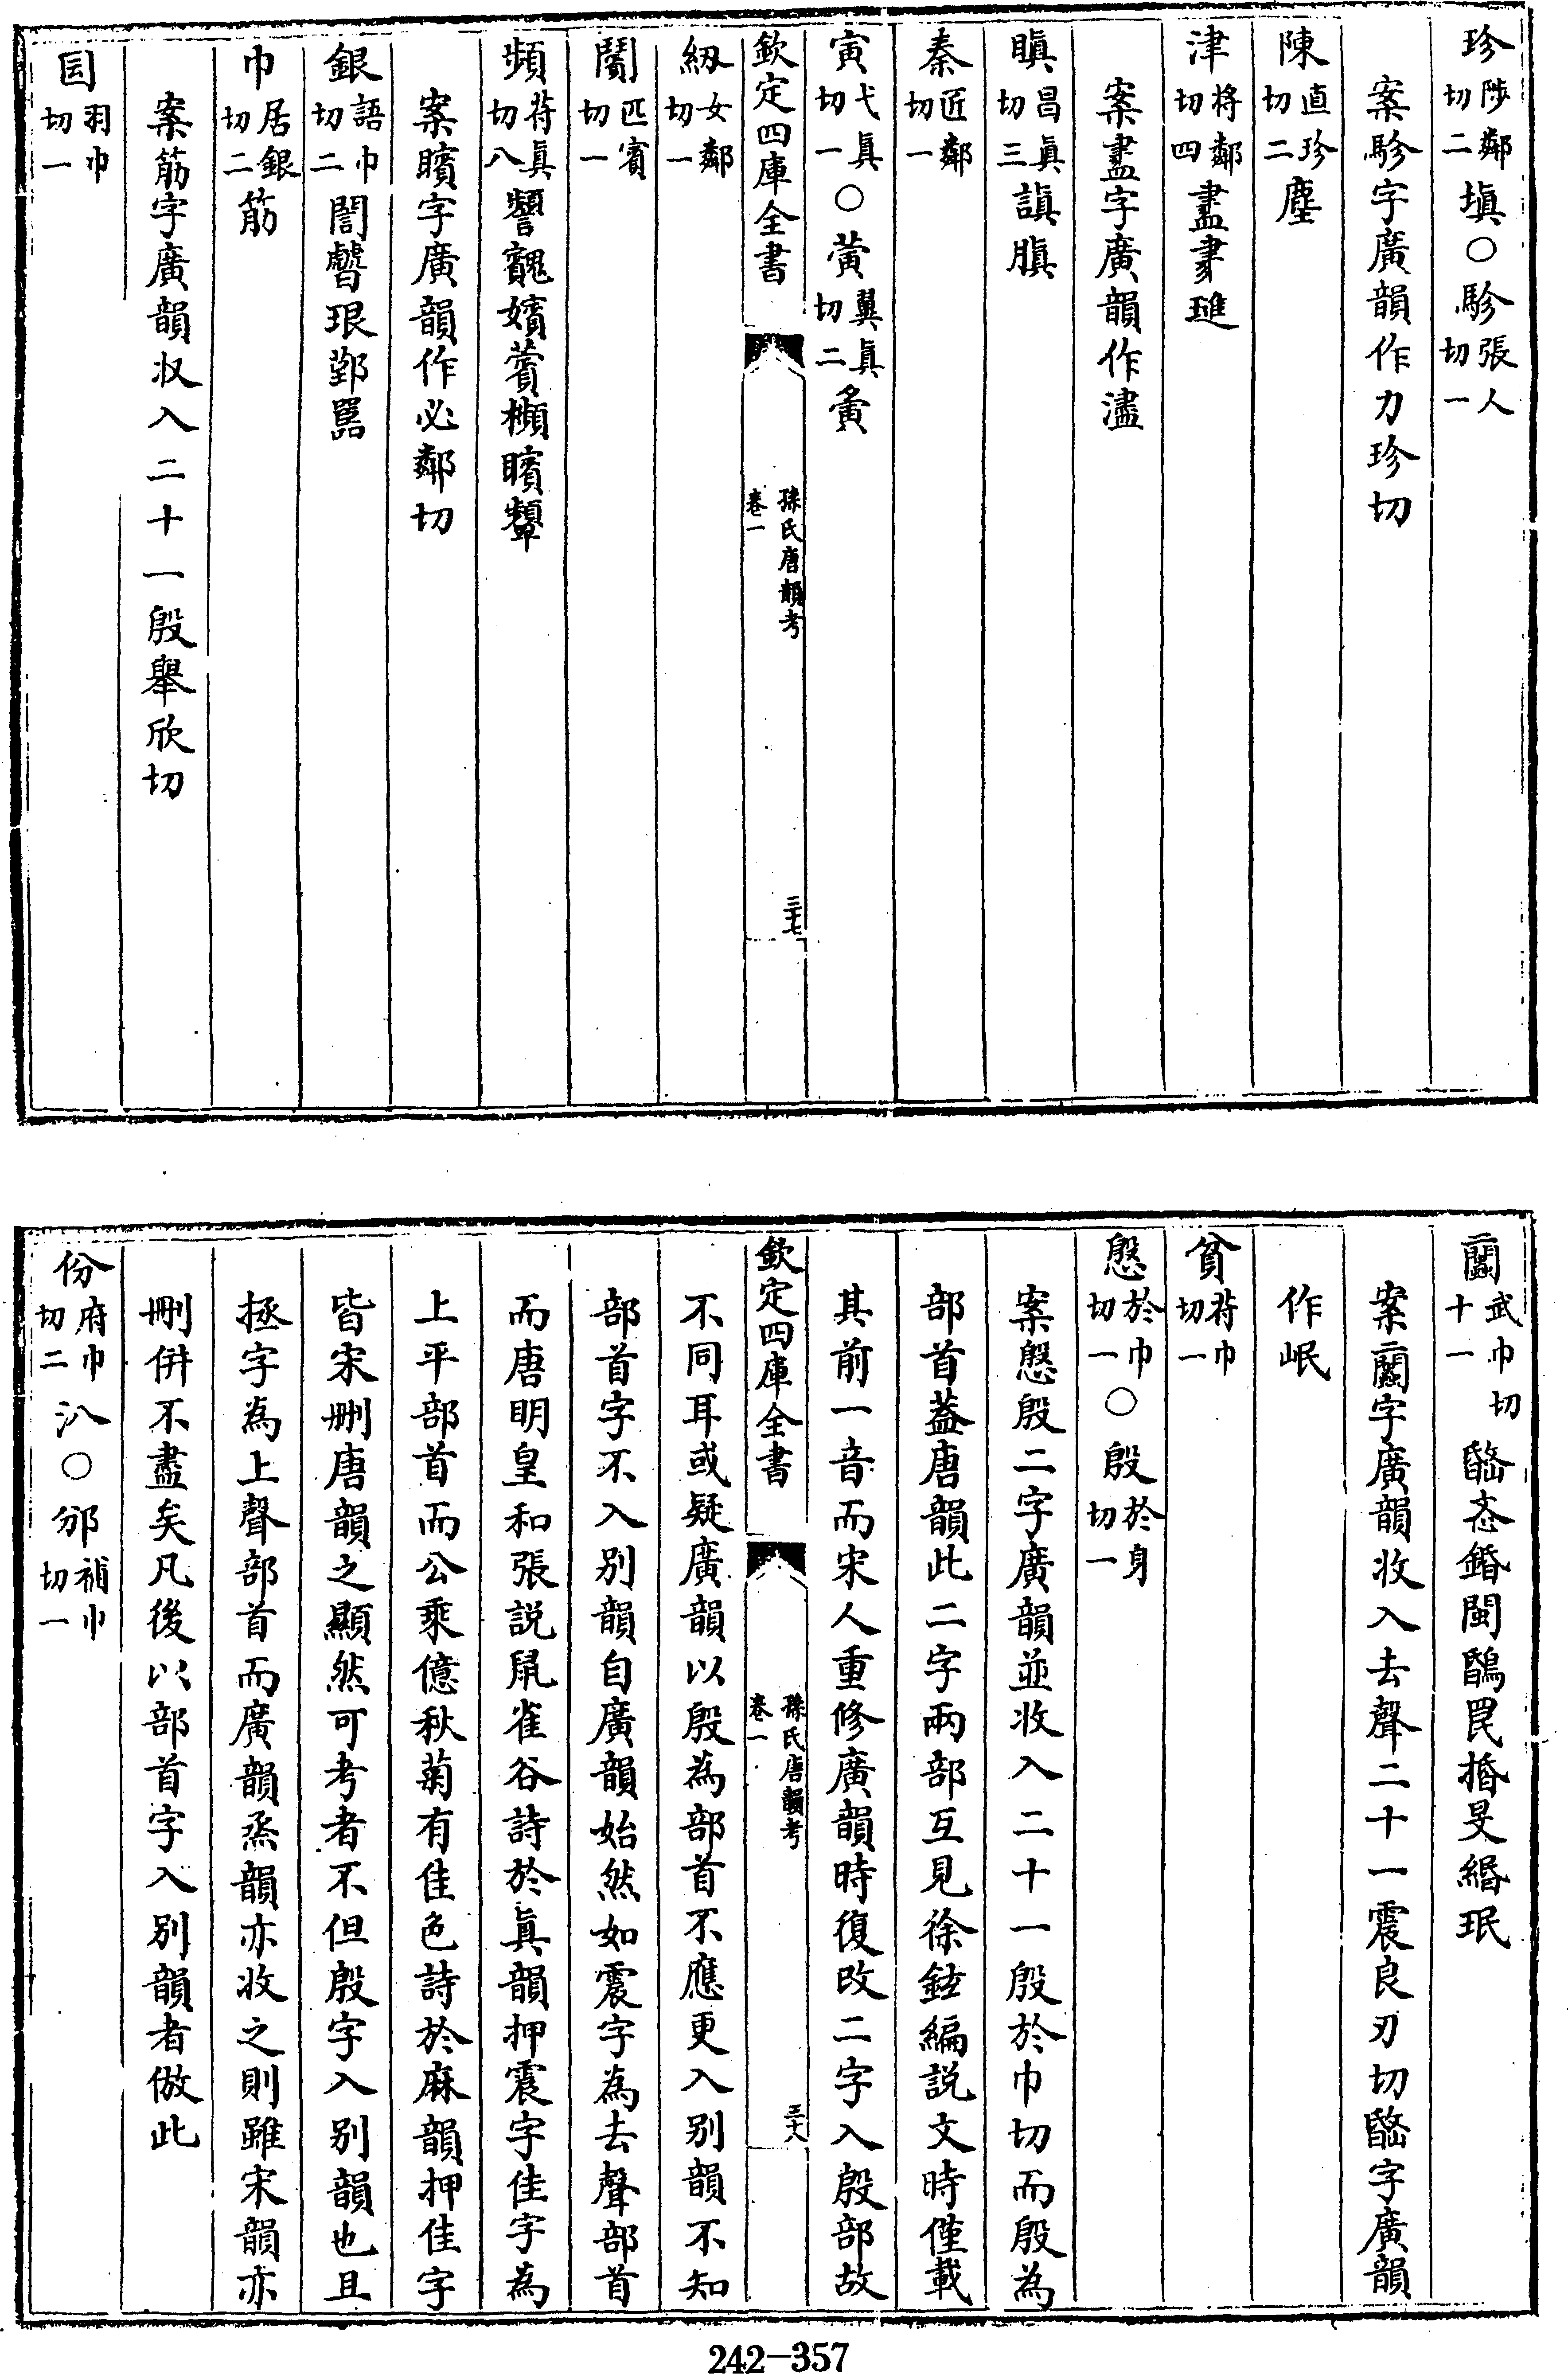 珍陟鄰切二塡○駗張人切一
案駗字廣韻作力珍切
陳直珍切二塵
津將鄰切四𧗁𦘔璡
案𧗁字廣韻作濜
瞋昌眞切三謓䐜
秦匠鄰切一
寅弋眞切一○黄翼眞切二夤
欽定四庫全書
孫氏唐韻考
卷一
三十七
紉女鄰切一
闠匹賓切一
頻符眞切八顰矉嬪薲櫇矉顰
案矉字廣韻作必鄰切
銀語巾切二誾珢鄞嚚
巾居銀切二筋
案筋字廣韻收入二十一殷舉欣切
囩羽巾切一
闅武巾切十一忞錉閩罠捪旻緡珉
案闅字廣韻收入去聲二十一震良刃切字廣韻
作岷
貧符巾切一
慇於巾切一○殷於身切一
案慇殷二字廣韻並收入二十一殷於巾切而殷為
部首葢唐韻此二字兩部互見徐鉉編説文時僅載
其前一音而宋人重修廣韻時復改二字入殷部故
欽定四庫全書
孫氏唐韻考
卷一
三十八
不同耳或疑廣韻以殷為部首不應更入别韻不知
部首字不入别韻自廣韻始然如震字為去聲部首
而唐明皇和張説䑕雀谷詩於眞韻押震字佳字為
上平部首而公乘億秋菊有佳色詩於麻韻押佳字
皆宋刪唐韻之顯然可考者不但殷字入别韻也且
拯字為上聲部首而廣韻烝韻亦收之則雖宋韻亦
刪併不盡矣凡後以部首字入别韻者倣此
份府巾切二汃○邠補巾切一
242-357